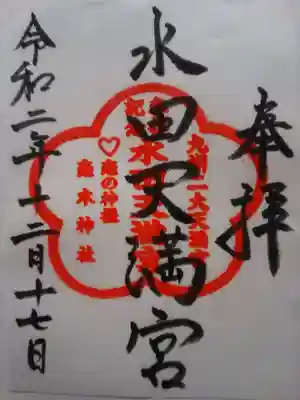 奉拝
水田天満宮
九州二大天満宮
♡恋の神社
恋木神社
令和二年十二月十七日